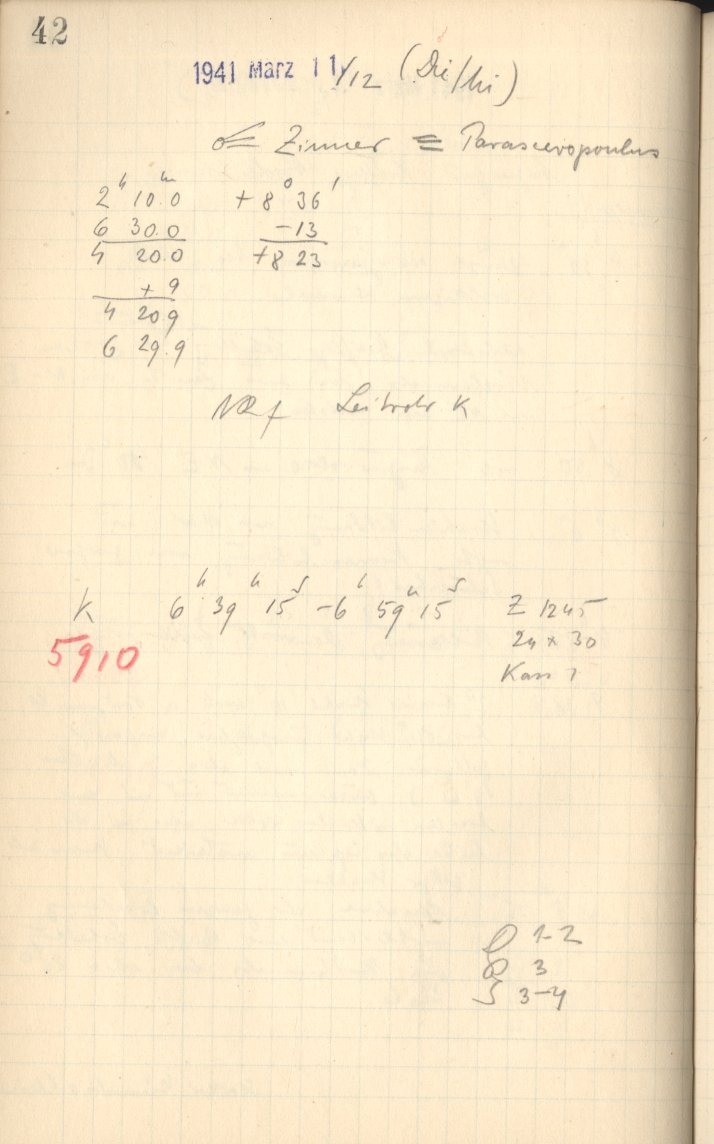 42
1941 März 11/12 (Di/Mi)
Zinner = Parascevopoulus
2ʰ 10ᵐ.0 +8° 36'
6 30.0 -13
4 20.0 +8 23
+9
4 20.9
6 29.9
Leitrohr K
K 6ʰ 39ᵐ 15ˢ - 6ʰ 59ᵐ 15ˢ Z 1245
5910 24 x 30
Kass
1-2
3
3-4